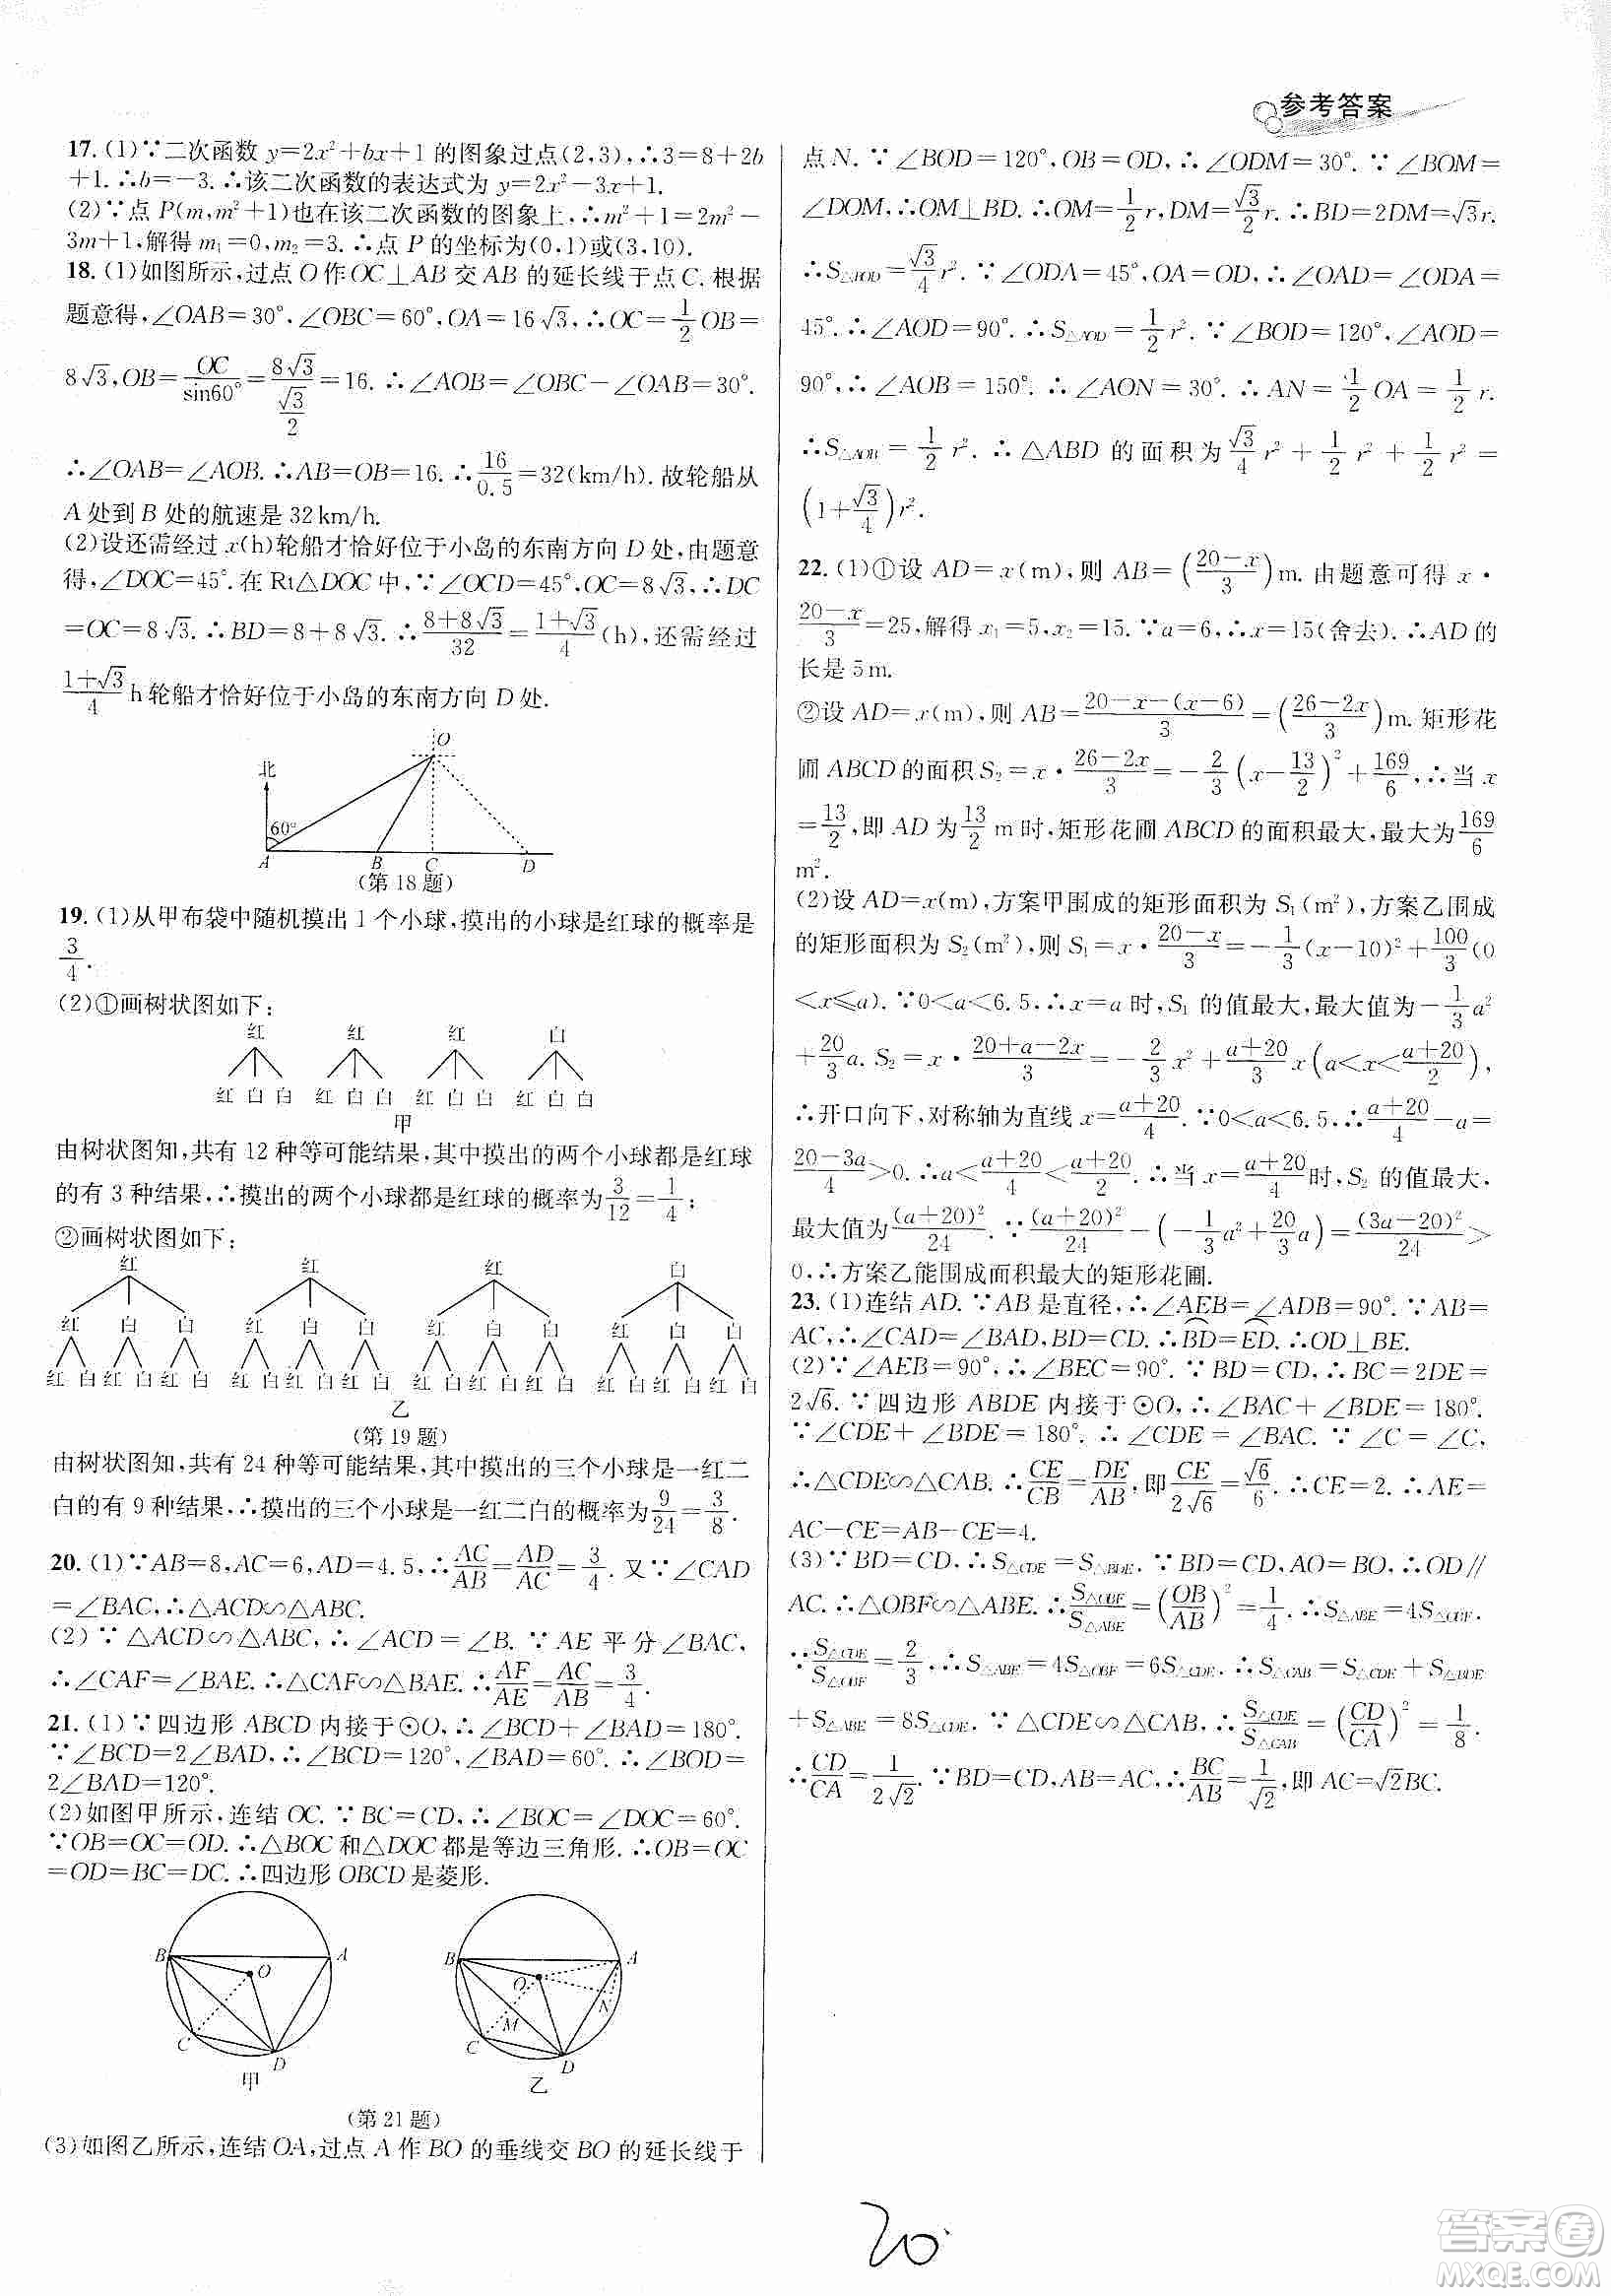 参考答案
17. (1)∵二次函数 y=2x²+bx+1 的图象过点(2,3),∴3=8+2b
+1. ∴b=-3. ∴该二次函数的表达式为 y=2x²-3x+1.
(2)∵点 P(m,m²+1)也在该二次函数的图象上,∴m²+1=2m²-
3m+1,解得 m₁=0,m₂=3. ∴点 P 的坐标为(0,1)或(3,10).
18. (1)如图所示,过点 O 作 OC⊥AB 交 AB 的延长线于点 C. 根据
题意得,∠OAB=30°,∠OBC=60°,OA=16√3,∴OC=1/2 OB=
8√3,OB=OC/sin60°=8√3/(√3/2)=16. ∴∠AOB=∠OBC-∠OAB=30°.
∴∠OAB=∠AOB. ∴AB=OB=16. ∴16/0.5=32(km/h). 故轮船从
A 处到 B 处的航速是 32 km/h.
(2)设还需经过 x(h)轮船才恰好位于小岛的东南方向 D 处,由题意
得,∠DOC=45°. 在 Rt△DOC 中,∵∠OCD=45°,OC=8√3,∴DC
=OC=8√3. ∴BD=8+8√3. ∴(8+8√3)/32=(1+√3)/4(h),还需经过
(1+√3)/4 h 轮船才恰好位于小岛的东南方向 D 处.
北
O
60°
A B C D
(第 18 题)
19. (1)从甲布袋中随机摸出 1 个小球,摸出的小球是红球的概率是
3/4.
(2)①画树状图如下:
红 红 红 白
红 白 白 红 白 白 红 白 白 红 白 白
甲
由树状图知,共有 12 种等可能结果,其中摸出的两个小球都是红球
的有 3 种结果,∴摸出的两个小球都是红球的概率为3/12=1/4;
②画树状图如下:
红 红 红 白
红 白 白 红 白 白 红 白 白 红 白 白
红 白 红 白 红 白 红 白 红 白 红 白 红 白 红 白 红 白 红 白 红 白 红 白
乙
(第 19 题)
由树状图知,共有 24 种等可能结果,其中摸出的三个小球是一红二
白的有 9 种结果,∴摸出的三个小球是一红二白的概率为9/24=3/8.
20. (1)∵AB=8,AC=6,AD=4.5,∴AC/AB=AD/AC=3/4. 又∵∠CAD
=∠BAC,∴△ACD∽△ABC.
(2)∵△ACD∽△ABC,∴∠ACD=∠B. ∵AE 平分∠BAC,
∴∠CAF=∠BAE. ∴△CAF∽△BAE. ∴AF/AE=AC/AB=3/4.
21. (1)∵四边形 ABCD 内接于⊙O,∴∠BCD+∠BAD=180°.
∵∠BCD=2∠BAD,∴∠BCD=120°,∠BAD=60°. ∴∠BOD=
2∠BAD=120°.
(2)如图甲所示,连结 OC. ∵BC=CD,∴∠BOC=∠DOC=60°.
∵OB=OC=OD. ∴△BOC 和△DOC 都是等边三角形. ∴OB=OC
=OD=BC=DC. ∴四边形 OBCD 是菱形.
B A O C D
甲
B A O N M C D
乙
(第 21 题)
(3)如图乙所示,连结 OA,过点 A 作 BO 的垂线交 BO 的延长线于
点 N. ∵∠BOD=120°,OB=OD,∴∠ODM=30°. ∵∠BOM=
∠DOM,∴OM⊥BD. ∴OM=1/2 r,DM=√3/2 r. ∴BD=2DM=√3r.
∴S△BOD=√3/4 r². ∵∠ODA=45°,OA=OD,∴∠OAD=∠ODA=
45°. ∴∠AOD=90°. ∴S△AOD=1/2 r². ∵∠BOD=120°,∠AOD=
90°,∴∠AOB=150°. ∴∠AON=30°. ∴AN=1/2 OA=1/2 r.
∴S△AOB=1/2 r². ∴△ABD 的面积为√3/4 r²+1/2 r²+1/2 r²=
(1+√3/4)r².
22. (1)①设 AD=x(m),则 AB=((20-x)/3)m. 由题意可得 x·
(20-x)/3=25,解得 x₁=5,x₂=15. ∵a=6,∴x=15(舍去). ∴AD 的
长是 5 m.
②设 AD=x(m),则 AB=(20-x-(x-6))/3=((26-2x)/3)m. 矩形花
圃 ABCD 的面积 S₂=x·(26-2x)/3=-2/3(x-13/2)²+169/6,∴当 x
=13/2,即 AD 为13/2 m 时,矩形花圃 ABCD 的面积最大,最大为169/6
m².
(2)设 AD=x(m),方案甲围成的矩形面积为 S₁(m²),方案乙围成
的矩形面积为 S₂(m²),则 S₁=x·(20-x)/3=-1/3(x-10)²+100/3(0
<x≤a). ∵0<a<6.5,∴x=a 时,S₁ 的值最大,最大值为-1/3 a²
+20/3 a. S₂=x·(20+a-2x)/3=-2/3 x²+(a+20)/3 x(a<x<(a+20)/2),
∴开口向下,对称轴为直线 x=(a+20)/4. ∵0<a<6.5,∴(a+20)/4-a=
(20-3a)/4>0. ∴a<(a+20)/4<(a+20)/2. ∴当 x=(a+20)/4时,S₂ 的值最大,
最大值为(a+20)²/24. ∵(a+20)²/24-(-1/3 a²+20/3 a)=(3a-20)²/24>
0,∴方案乙能围成面积最大的矩形花圃.
23. (1)连结 AD. ∵AB 是直径,∴∠AEB=∠ADB=90°. ∵AB=
AC,∴∠CAD=∠BAD,BD=CD. ∴BD=ED. ∴OD⊥BE.
(2)∵∠AEB=90°,∴∠BEC=90°. ∵BD=CD,∴BC=2DE=
2√6. ∵四边形 ABDE 内接于⊙O,∴∠BAC+∠BDE=180°.
∵∠CDE+∠BDE=180°. ∴∠CDE=∠BAC. ∵∠C=∠C,
∴△CDE∽△CAB. ∴CE/CB=DE/AB,即CE/2√6=√6/6. ∴CE=2. ∴AE=
AC-CE=AB-CE=4.
(3)∵BD=CD,∴S△CDE=S△BDE. ∵BD=CD,AO=BO,∴OD∥
AC. ∴△OBF∽△ABE. ∴S△OBF/S△ABE=(OB/AB)²=1/4. ∴S△ABE=4S△OBF.
∵S△CDE/S△OBF=2/3,∴S△ABE=4S△OBF=6S△CDE. ∴S△CAB=S△CDE+S△BDE
+S△ABE=8S△CDE. ∵△CDE∽△CAB,∴S△CDE/S△CAB=(CD/CA)²=1/8.
∴CD/CA=1/2√2. ∵BD=CD,AB=AC,∴BC/AB=1/√2,即 AC=√2BC.
20
答案卷
MXQE.COM